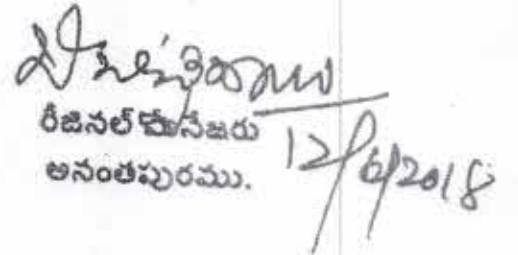 రీజినల్ మేనేజరు
అనంతపురము.
12/6/2018